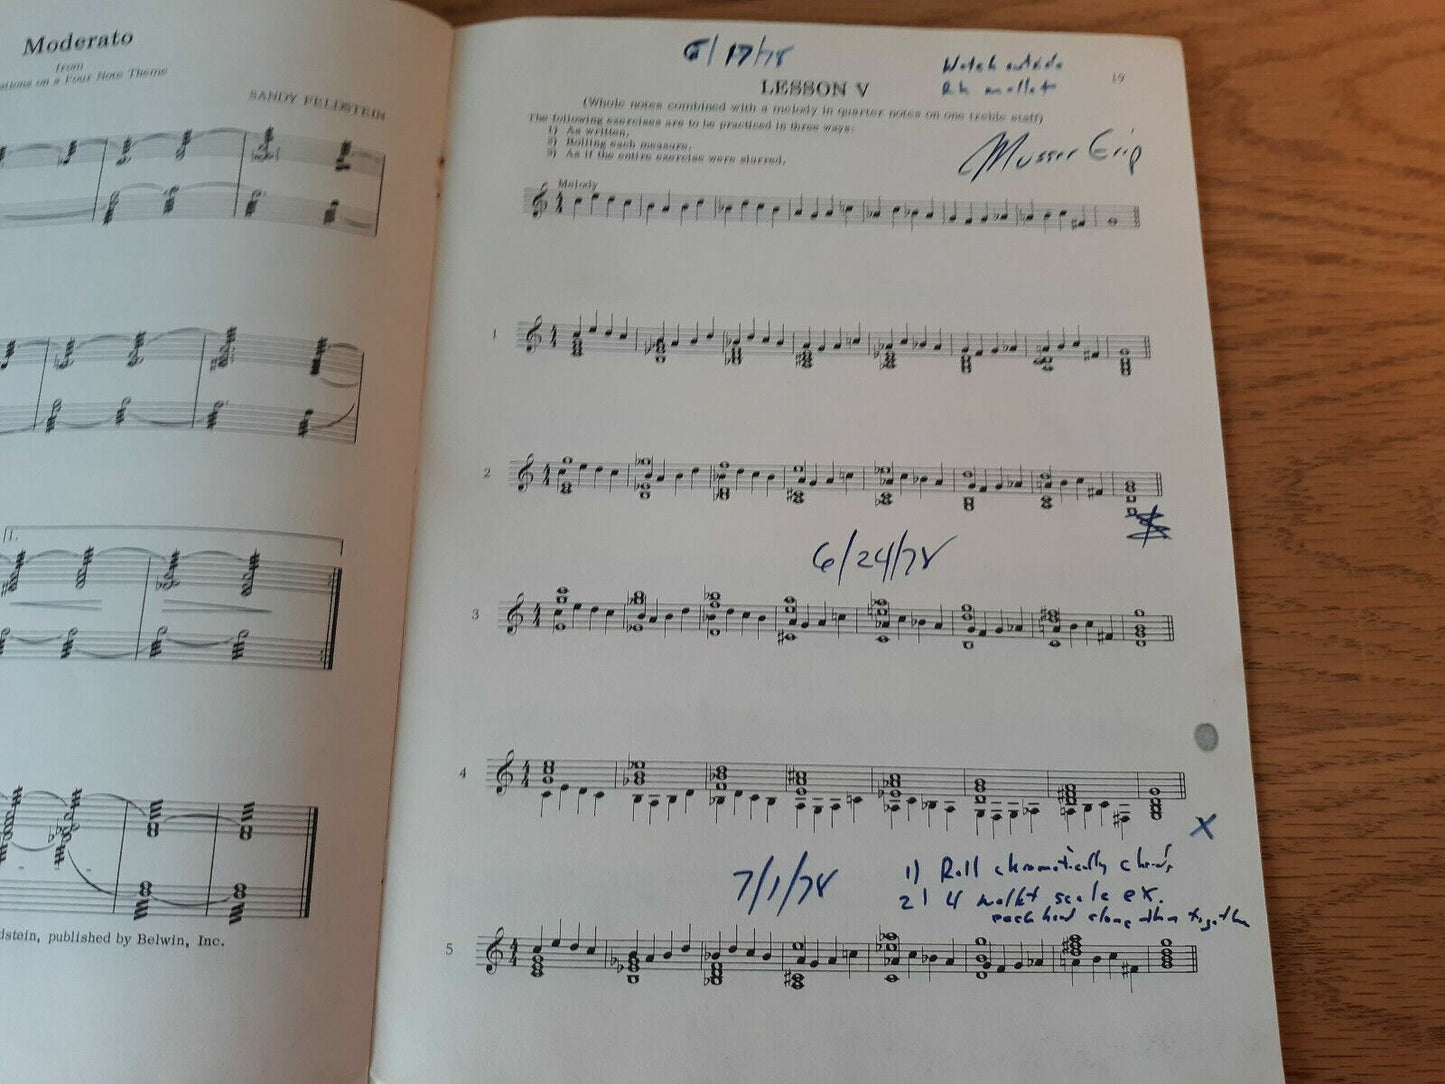 Moderato
from
ations on a Four Note Theme
SANDY FELDSTEIN
1.
dstein, published by Belwin, Inc.
6/17/78
Watch outside
Rh mallet
19
LESSON V
(Whole notes combined with a melody in quarter notes on one treble staff)
The following exercises are to be practiced in three ways:
1) As written,
2) Rolling each measure,
3) As if the entire exercise were slurred.
Musser Grip
Melody
1
2
6/24/78
3
4
X
7/1/78
1) Roll chromatically chords
2) 4 mallet scale ex.
each hand alone then together
5